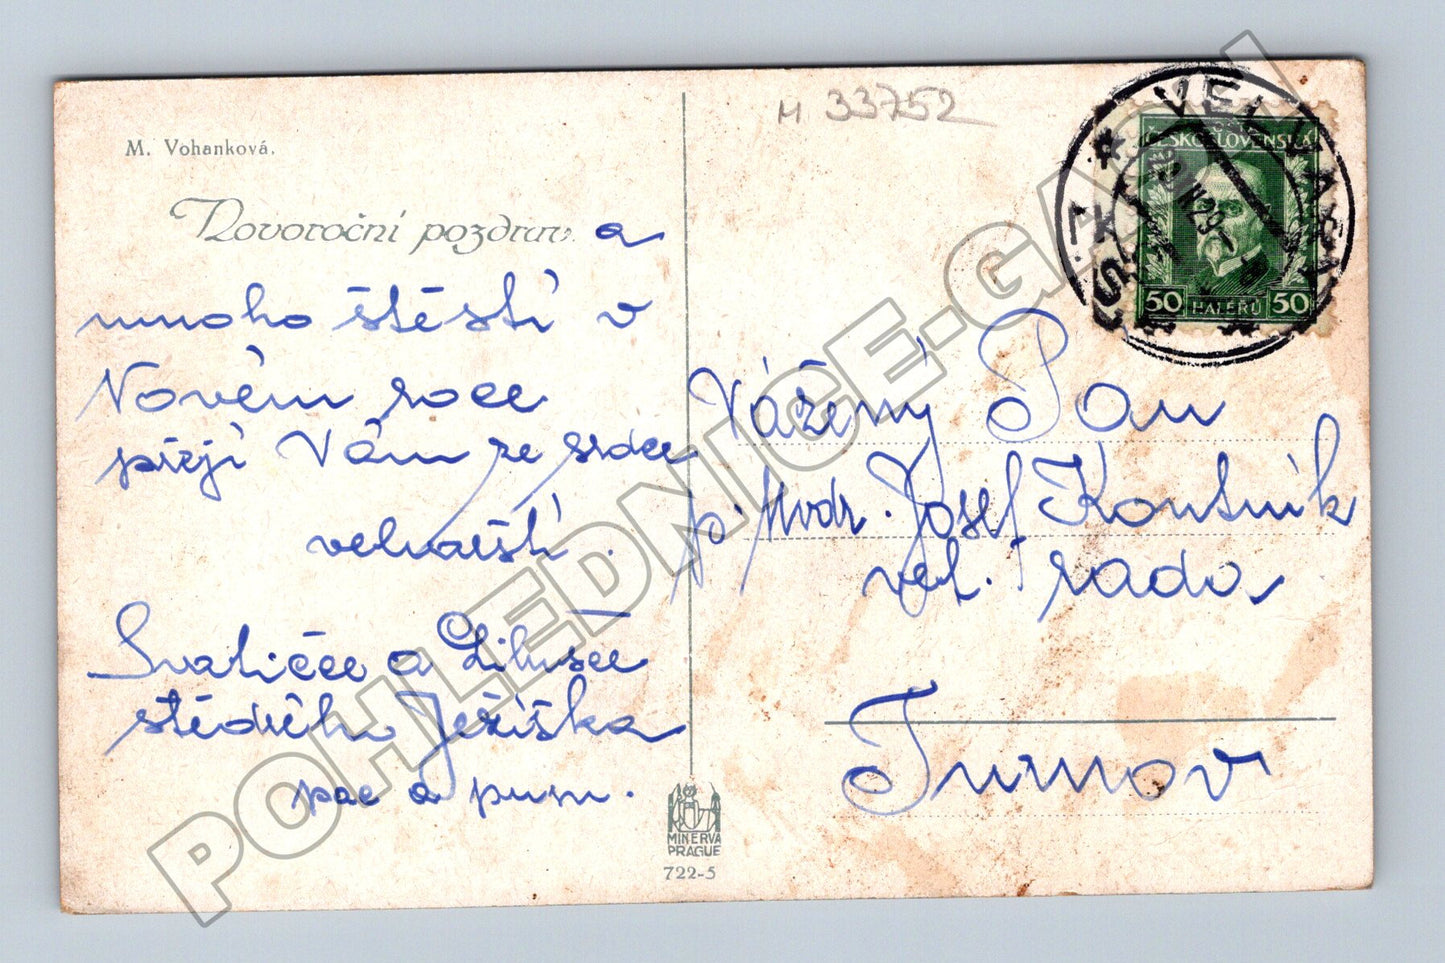 M. Vohanková.
Novoroční pozdrav. a
mnoho štěstí v
Novém roce
přejí Vám ze srdce
velnaští.
Svatičce a Libušce
štědrého Ježíška
pac a pusu.
M 33752
VELVARY
ČESKOSLOVENSKÁ
50 HALÉŘŮ 50
Vážený Pan
p. Mvdr. Josef Koutník
vel. rada
Turnov
MINERVA
PRAGUE
722-5
POHLEDNICE-GASH